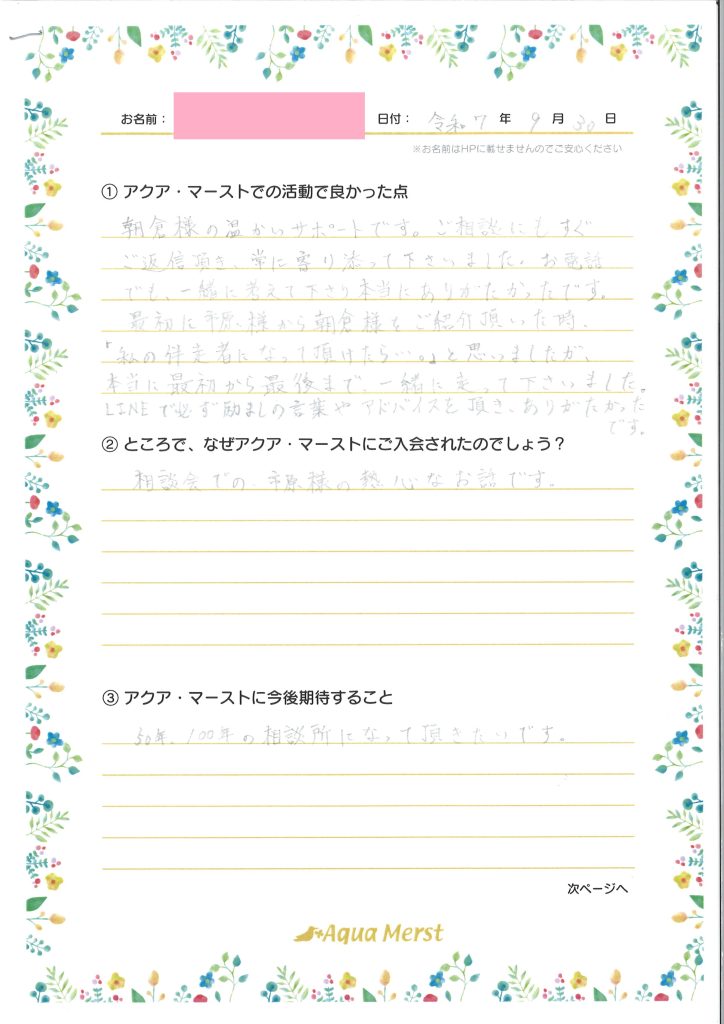 お名前： 日付： 令和 7 年 9 月 30 日
※お名前はHPに載せませんのでご安心ください
① アクア・マーストでの活動で良かった点
朝倉様の温かいサポートです。ご相談にもすぐ
ご返信頂き、常に寄り添って下さいました。お電話
でも、一緒に考えて下さり本当にありがたかったです。
最初に平原様から朝倉様をご紹介頂いた時、
「私の伴走者になって頂けたら…。」と思いましたが、
本当に最初から最後まで、一緒に走って下さいました。
LINEで必ず励ましの言葉やアドバイスを頂き、ありがたかった
です。
② ところで、なぜアクア・マーストにご入会されたのでしょう？
相談会での、平原様の熱心なお話です。
③ アクア・マーストに今後期待すること
50年、100年の相談所になって頂きたいです。
次ページへ
Aqua Merst